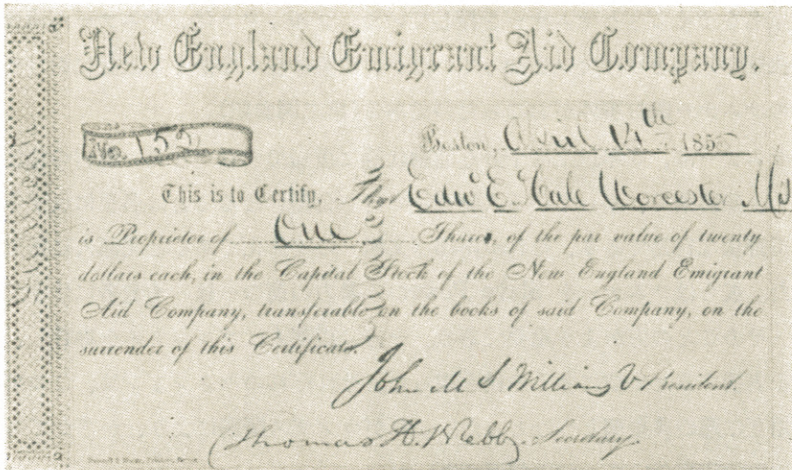 New England Emigrant Aid Company.
No. 155
Boston, April 14th 1855
This is to Certify, That Edw E. Hale Worcester Ms
is Proprietor of One Share, of the par value of twenty
dollars each, in the Capital Stock of the New England Emigrant
Aid Company, transferable on the books of said Company, on the
surrender of this Certificate.
John M S Williams V President.
Thomas H. Webb, Secretary.